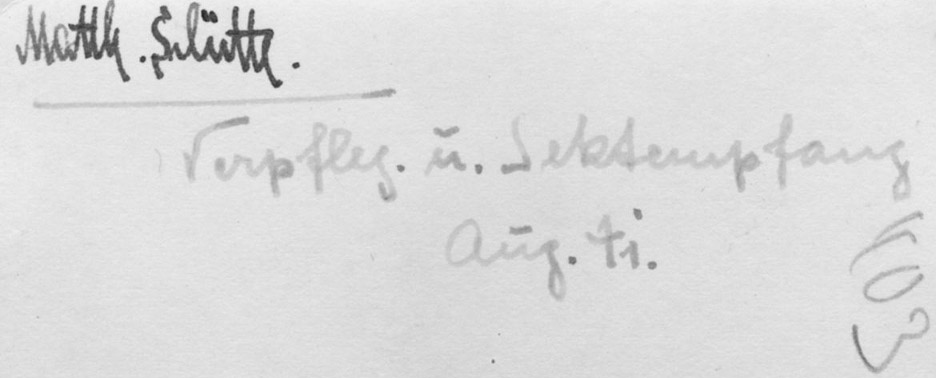 Matth. Schütte.
Verpfleg. u. Sektempfang
Aug. 41.